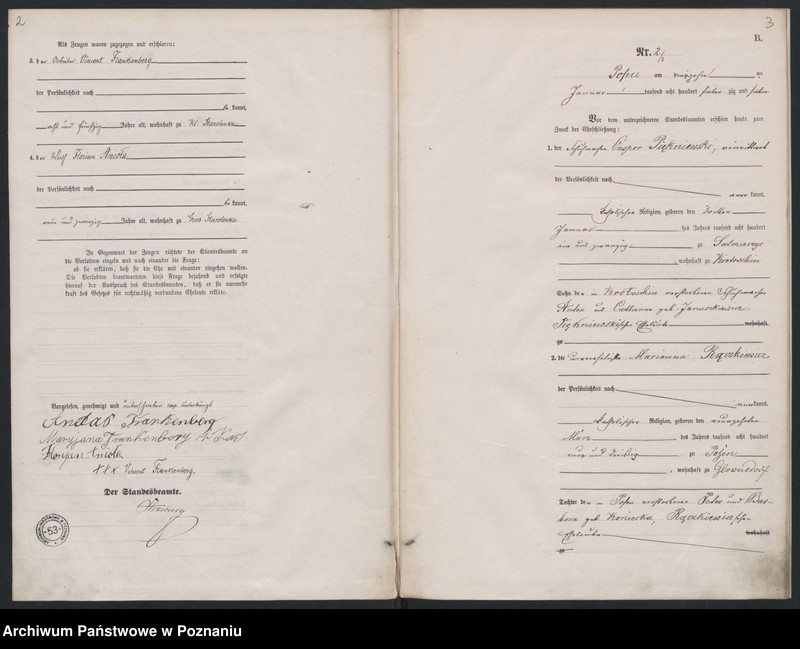 2
Als Zeugen waren zugezogen und erschienen:
3. der Arbeiter Vincent Frankenberg
der Persönlichkeit nach
kannt,
acht und fünfzig Jahre alt, wohnhaft zu Kl. Starolenka
4. der Florian Anioła
der Persönlichkeit nach
be kannt,
neun und zwanzig Jahre alt, wohnhaft zu Gros Starolenka
In Gegenwart der Zeugen richtete der Standesbeamte an
die Verlobten einzeln und nach einander die Frage:
ob sie erklären, daß sie die Ehe mit einander eingehen wollen.
Die Verlobten beantworteten diese Frage bejahend und erfolgte
hierauf der Ausspruch des Standesbeamten, daß er sie nunmehr
kraft des Gesetzes für rechtmäßig verbundene Eheleute erkläre.
Vorgelesen, genehmigt und unterschrieben resp. unterkreuzt
Frankenberg
Maryjana Frankenberg
Florjan Anioła
XXX Vincent Frankenberg.
Der Standesbeamte.
53
3
B.
Nr. 2
Posen am vierzehn ten
Januar tausend acht hundert sieben zig und sieben
Vor dem unterzeichneten Standesbeamten erschien heute zum
Zweck der Eheschließung:
1. der Schuhmacher Casper Piękniewski,
der Persönlichkeit nach
kannt,
katholischer Religion, geboren den
Januar des Jahres tausend acht hundert
ein und zwanzig zu
, wohnhaft zu Krotoschin
Sohn der in Krotoschin verstorbenen Schuhmacher
und Catharina geb. Januszkiewicz
Piękniewskischen Eheleute wohnhaft
zu
2. die unverehelichte Marianna Rączkiewicz
der Persönlichkeit nach
kannt,
katholischer Religion, geboren den
März des Jahres tausend acht hundert
und dreißig zu Posen
, wohnhaft zu Glownodorf
Tochter der in Posen verstorbenen Peter und Bar-
bara geb. Konieczka, Rączkiewiczschen
Eheleute wohnhaft
zu
Archiwum Państwowe w Poznaniu